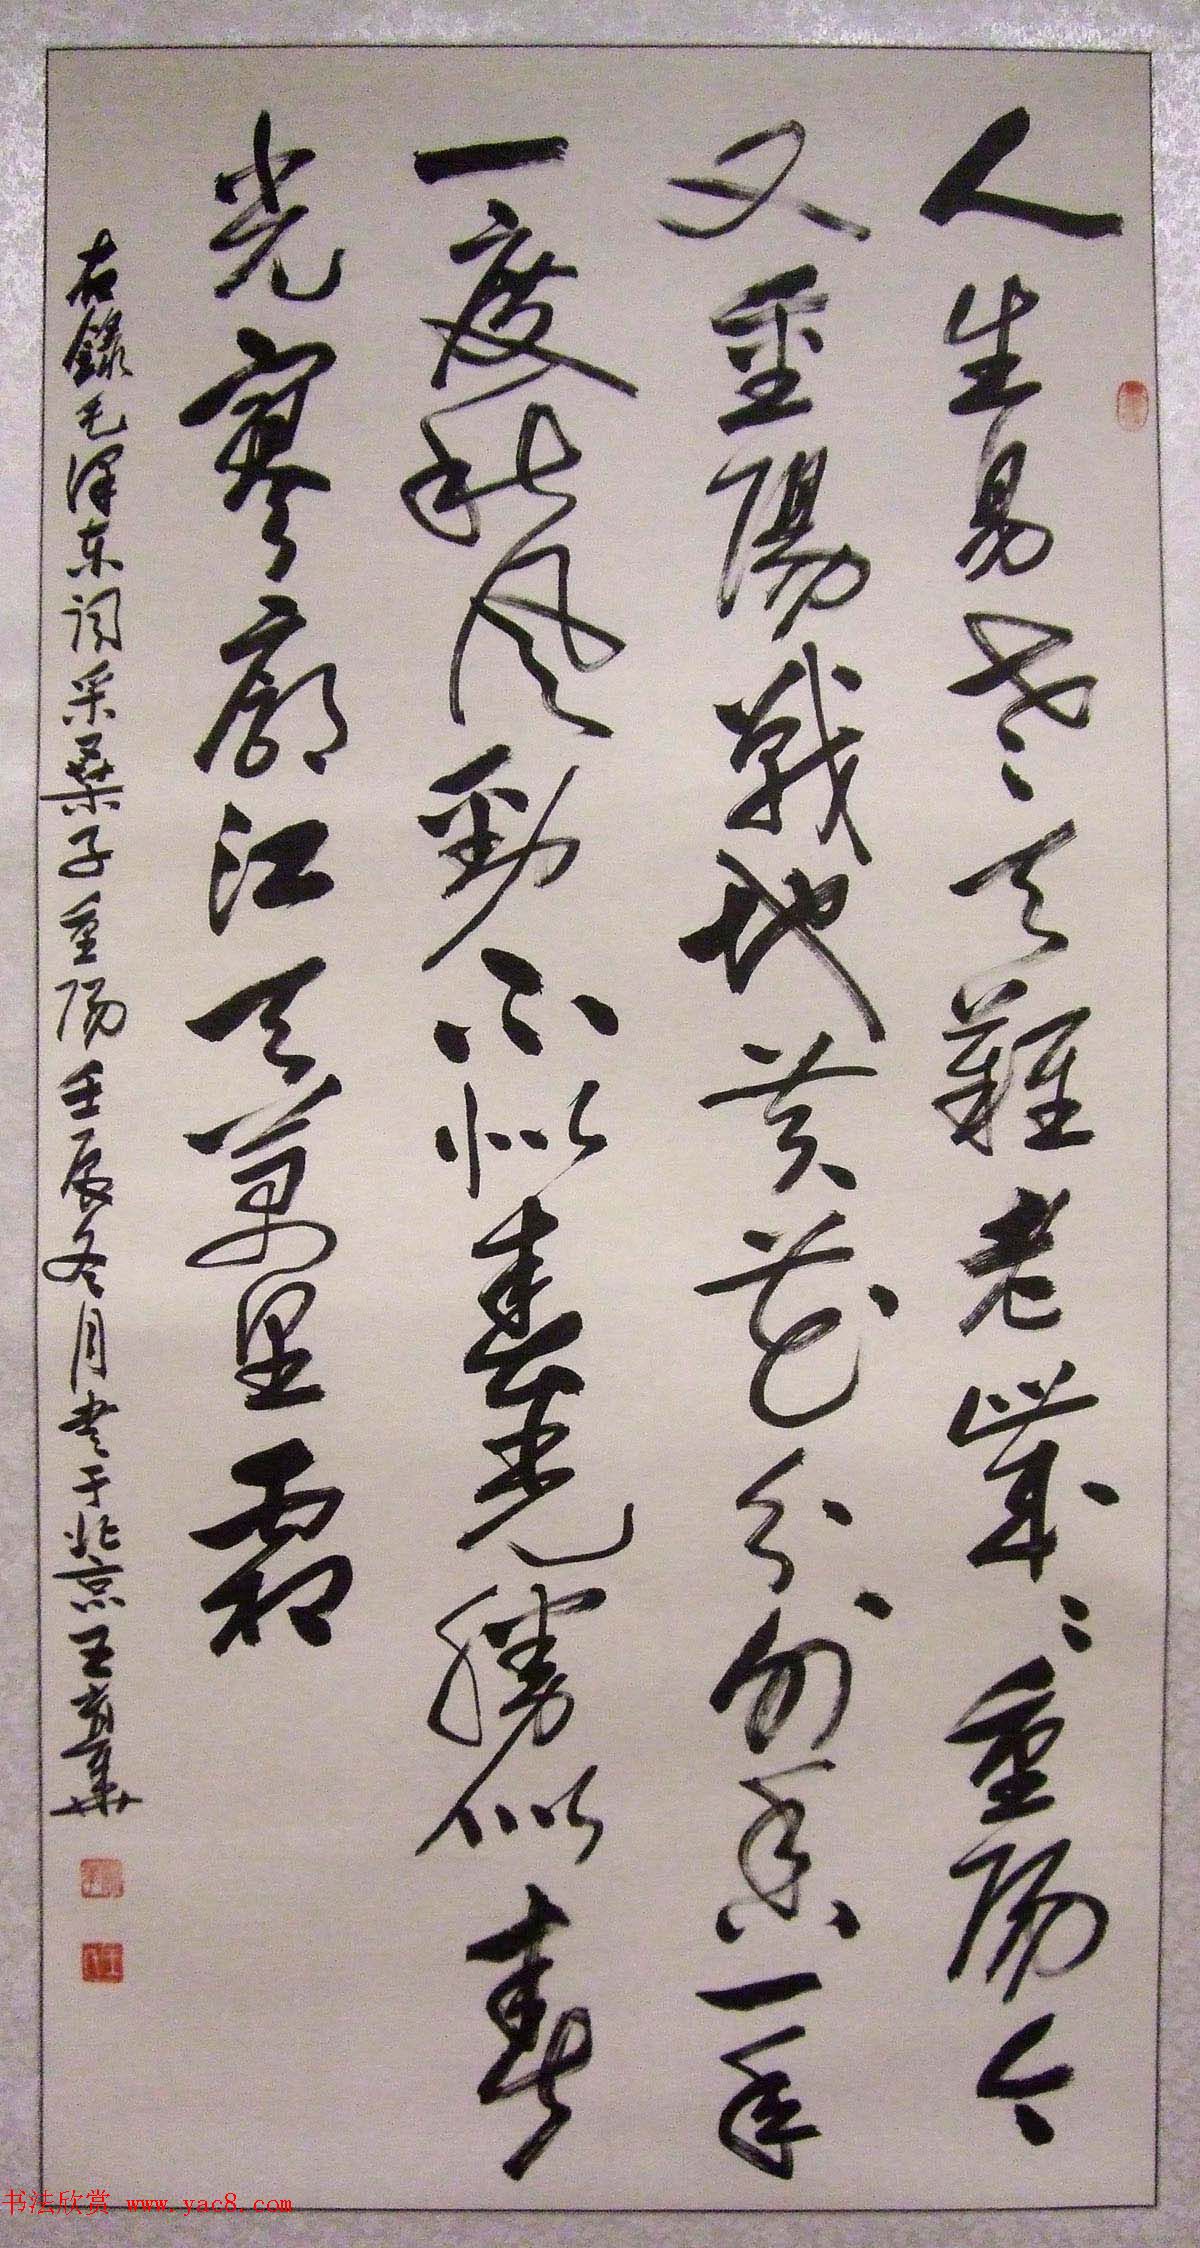 人生易老天難老歲々重陽今
又重陽戰地黃花分外香一年
一度秋風勁不似春光勝似春
光寥廓江天萬里霜
右錄毛泽东词采桑子重陽壬辰冬月書于北京王華
书法欣赏 www.yac8.com